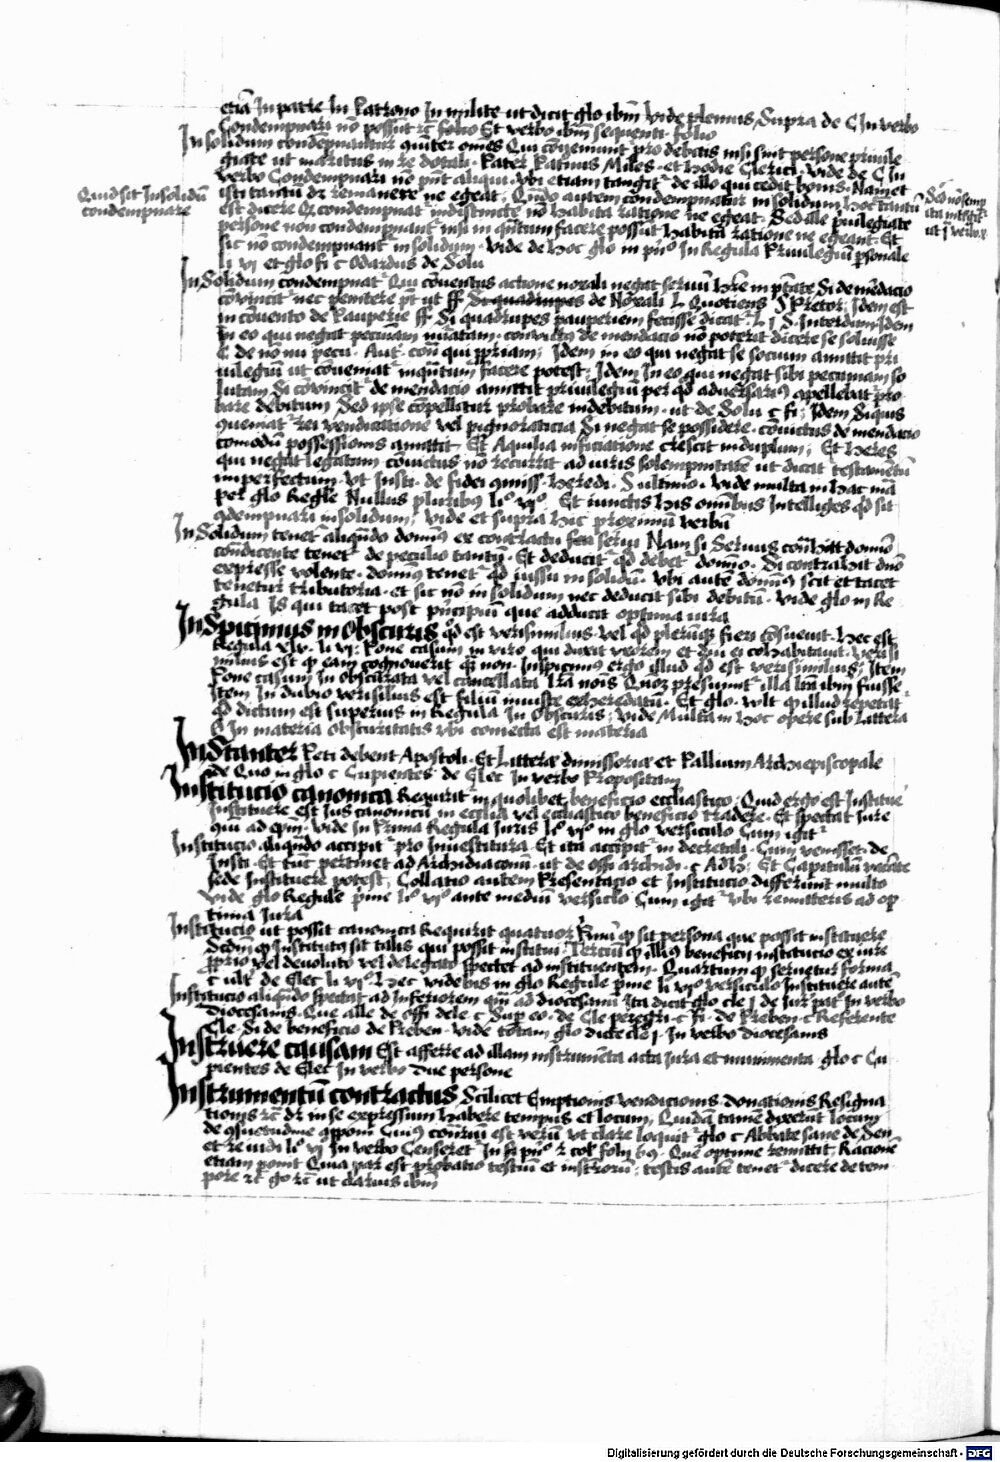 etiā In patre In Patrono In milite ut dicit glo ibm̄ Vide plenius Supra de C In verbo
Condempnari nō possūt rc̄ folio Et verbo ibm̄ sequenti folio
In solidum condempnantur omēs Qui conveniunt pro debitis nisi sint persone privile
giate ut maritus in re dotali. Pater Patrinus Miles. et hodie Clerici. Vide de C In
verbo Condempnari nō pn̄t aliqui. Vbi etiam tangit̄ de illo qui cedit bonis. Nam et
isti tantū dr̄ remanere ne egeat. Qn̄do autem condempnatur in solidum hoc tantū
est dicere Q condempnat̄ indistincte nō habita ratione ne egeat. Sed ille privilegiate
persone non condempnant̄ nisi in qn̄tum facere possūt habita ratione ne egeant. Et
sic nō condempnant̄ in solidum. Vide de hoc glo in prīo In Regula Privilegiū personale
li vi et glo fi c Odardus de Solu
Quid sit Insolidū
condempnare
In Solidum condempnat̄ Qui conventus actione noxali negat servū hr̄e in ptāte Si de mēdacio
cōvincat̄ nec penitere pt ut ff Si quadrupes de Noxali L Quotiens § Pretor; Idem est
in cōvento de Pauperie ff Si quadrupes pauperiem fecisse dicat̄ L j §. Interdum. Idem
In eo qui negat pecuniam nūatam. convictus de mendacio nō poterit dicere se solvisse
C de nō nū pecu. Aut̄. con̄ qui ppriam; Idem in eo qui negat se socium amittit pri
vilegiū ut cōvemat̄ inqn̄tum facere potest; Idem In eo qui negat sibi pecuniam so
lutam Si cōvincit̄ de mendacio amittit privilegiū per qd adversariꝯ apellebat pro
bare debitum Sed ipse cōpellatur probare indebitum. ut de Solu c fi; Idem Si quis
rei vendicatione vel pignoraticia Si negat se possidere. cōvictus de mendacio
comodū possessionis amittit; Et Aquilia inficiatione crescit in duplum; Et heres
qui negat legatum cōvictus nō recurrit ad iuris solempnitatē ut dicat testamētū
imperfectum. Vt Insti. de fidei cōmiss. heredi. § ultimo. Vide multa in hac mā
per glo Regle Nullus pluribꝯ li° vi°. Et iunctis his omībus Intelliges qd sit
cōdempnari insolidum; Vide et supra hic proximū verbū
In Solidum tenet̄ aliqn̄do domīꝯ ex contractu servi Nam si Servus con̄hit domīo
condicente tenet̄ de peculio tantū. Et deducit̄ qd debet domīo. Si contrahit dn̄o
expresse volente. domīꝯ tenet̄ qd iussu insolidū. Vbi autē domīꝯ scit et tacet
tenetur tributoria. et sic nō insolidum nec deducit sibi debitū. Vide glo in Re
gula Is qui tacet post principiū que adducit optima iura
InSpicimus in Obscuris qd est verisimilius. vel qd plerūqꝫ fieri cōsuevit. Hec est
Regula xlv. li vi; Pone casum in viro qui duxit uxorem et diu ei cohabitavit. Verisi
milius est ꝙ eam cognoverit q̄ non. Inspicimꝯ ergo illud qd est verisimilius; Item
Pone casum In obscurata vel cancellata lrā nois Quoꝫ presumit̄ illa lrā ibm fuisse
Item In dubio verisilius est filiū inuiste exheredatū. Et glo. vlt ꝙ illud repetat̄
qd dictum est superius in Regula In Obscuris; Vide Multa in hoc opere sub Littera
O In materia obscuritatis ubi comecta est materia
InStanter Peti debent Apostoli. Et Litteræ dimissoriæ et Pallium Archiepiscopale
de Quo in glo c Cupientes de Elec In verbo Propositam
Institucio canonica Requirit̄ in quolibet beneficio eccliastico; Quid ergo est Instituē
Instituere est Ius canonicū in ecclīa vel eccliastico beneficio tradere. Et spectat Iure
qui ad epm̄. Vide In Prima Regula Iuris li° vi° in glo versiculo Cum igit̄
Institucio aliqn̄do accipit̄ pro Investitura. Et ita accipit̄ in decretali. Cum venisset. de
Insti. Et tūc pertinet ad Archidiaconū. ut de offi archidi. c Ad h; Et Capitulū vacāte
sede Instituere potest; Collatio autem Presentacio et Institucio differunt multo
Vide glo Regule prime li° vi° ante mediū versiclo Cum igit̄ ubi remitteris ad op
tima Iura
Institucio ut possit canonica Requirit quatuor Prīmū ꝙ sit persona que possit instituere
Scdm ꝙ Institutꝯ sit talis qui possit institui. Terciū ꝙ illiꝯ beneficii institucio ex iure
pprio vel devoluto vel delegato spectet ad instituentem. Quartum ꝙ servetur forma
c ult̄ de Elec li vi°. Hec videbis in glo Regule prime li° vi° versiculo Instituere autē
Institucio aliqn̄do spectat ad Inferiorem qm̄ ad diocesanū Ita dicit glo cle j de Iur pat In verbo
Diocesanis. Que alle de offi dele c Sup eo. de Cle peregri. c fi. de Preben. c Referente
Cle. Si de beneficio de Preben. Vide tōtam glo dicte cle j. In verbo Diocesanis
Instruere causam Est afferre ad illam instrumēta acta Iura et munimenta. glo c Cu
pientes de Elec In verbo Due persone
Instrumentū contractus Scilicet Emptionis Vendicionis donationis Resigna
tionis rc̄ dr̄ in se expressum habere tempus et locum; Quidā tamē dixerūt locum
de cōsuetudine apponi Cuiꝯ con̄riū est verū Vt clare loquit̄ glo c Abbate sane de Sen
et re iudi li° vi In verbo Censeret In fi prīo
etiam ponit Quia par est probatio testiū et instrorū; testis autē tenet̄ dicere de tem
pore rc̄ go rc̄ ut clarius ibm̄
Digitalisierung gefördert durch die Deutsche Forschungsgemeinschaft - DFG